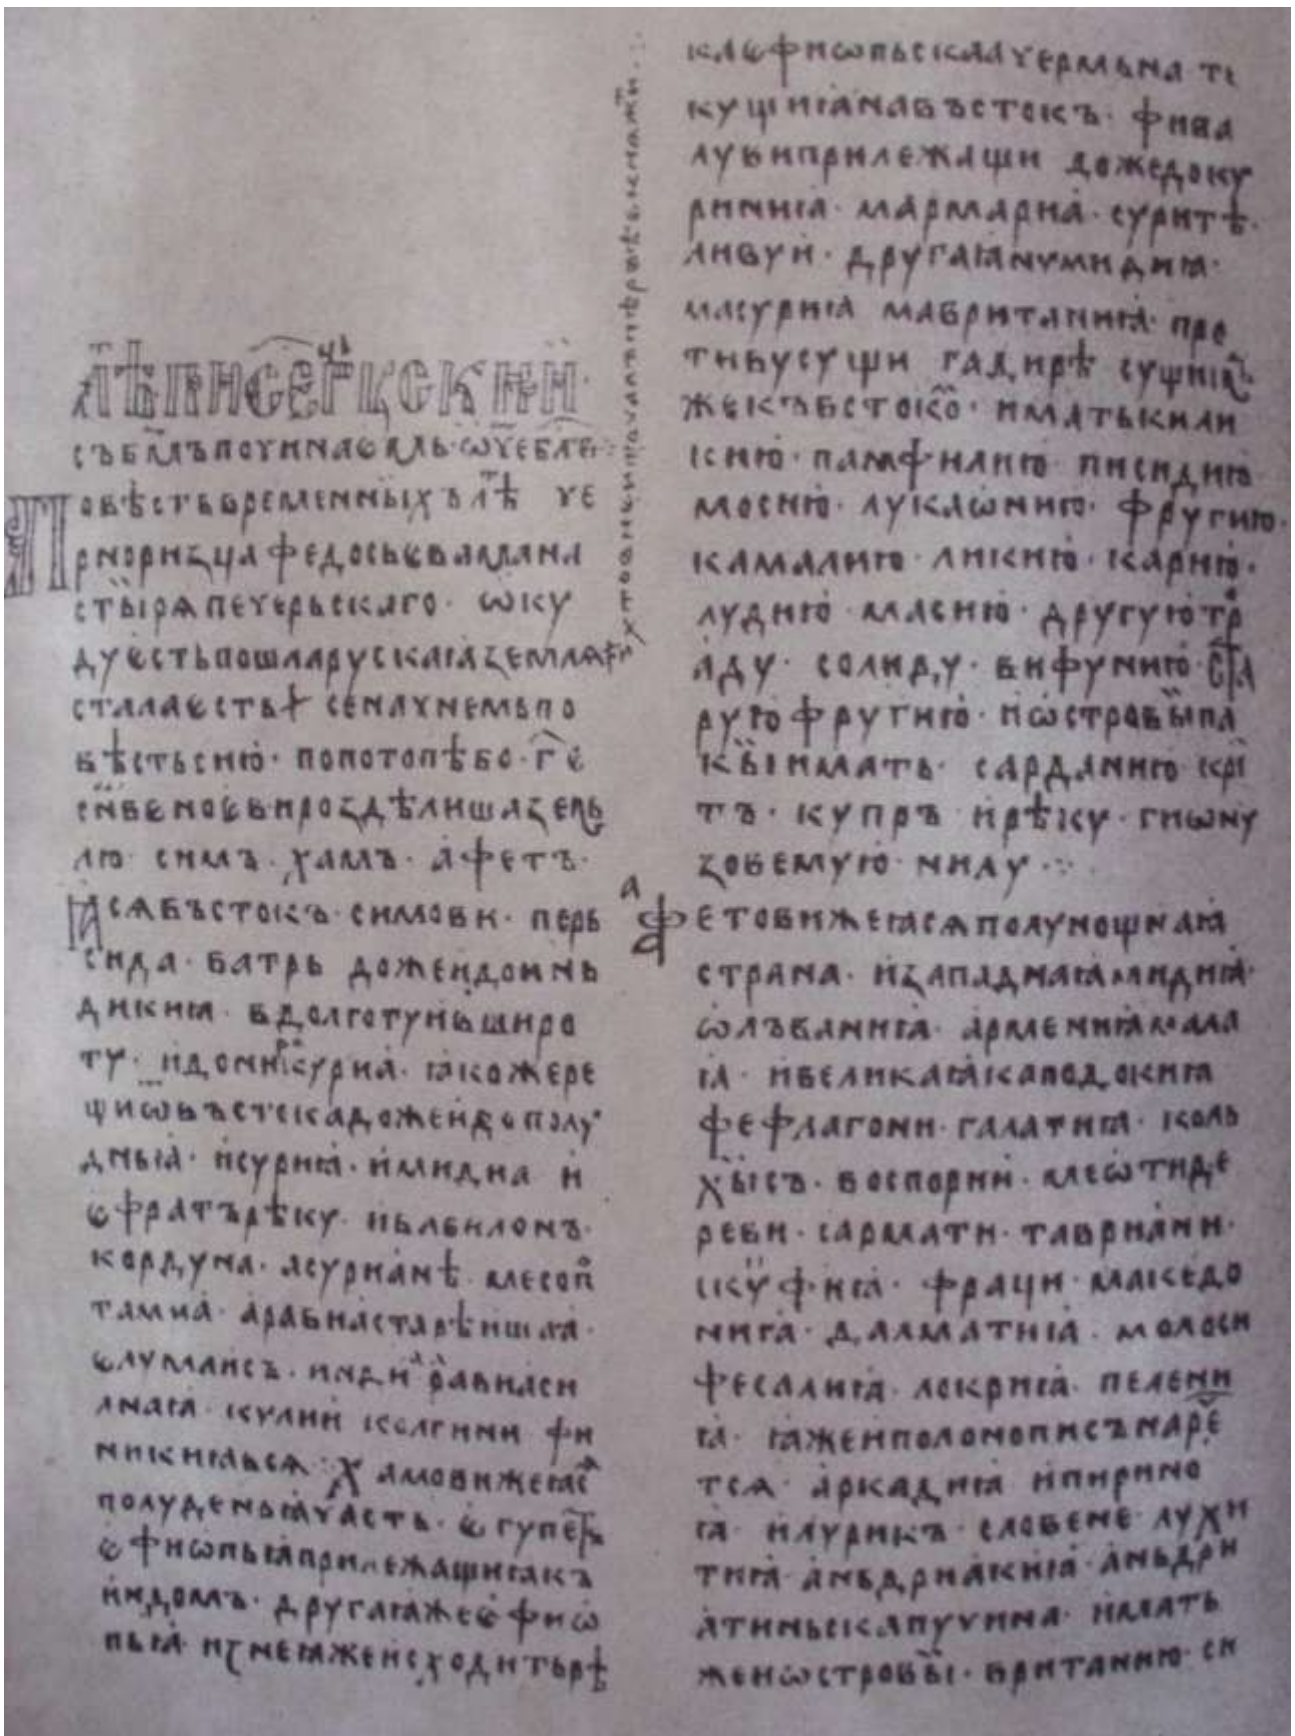 лѣтⷪ҇писе́ць рꙋскии·
съ бм҃ъ починаємь· ѡч҃е бл҃ви·:·
Повѣсть временныхъ лѣⷮ че
рноризца федосьєва мана
стырѧ печерьскаго· ѿку
ду єсть пошла рускаꙗ землѧ и
хто в неи почалъ пѣрвѣє кнѧжиⷮи·:·
стала єсть ⁘ се начнемь по
вѣсть сию· по потопѣ бо· г҃ є
сн҃ве ноєви роздѣлиша зем
лю симъ· хамъ· афетъ·
ꙗсѧ въстокъ· симови· перь
сида· ватрь доже и до инь
дикиꙗ· в долготу и в широ
ту· и до ниⷬкуриꙗ· ꙗкоже ре
щи ѿ въстока доже и до полу
дньꙗ· и суриꙗ· и мидиа и
єфратъ рѣку· и вавилонъ·
кордуна· асурианѣ· месопⷪ
тамиа· аравиа старѣишаꙗ·
єлумаисъ· индиⷶ равиа си
лнаꙗ· кулии колгини фи
никиꙗ всѧ· хамови же ꙗсⷶ
полуденьꙗ часть· єгупеⷮ
єфиѡпьꙗ прилежащиꙗ къ
индомъ· другаꙗ же єфиѡ
пьꙗ из неꙗже исходить рѣ
ка єфиѡпьскаа чермьна те
кущиꙗ на въстокъ· фива
луви прилежащи доже до ку
риниꙗ· мармариа· суритѣ·
ливуи· другаꙗ нумидиꙗ·
масуриꙗ мавританиꙗ· про
тиву сущи гадирѣ сущиꙗⷨ
же къ въстокоⷨ· имать кили
кию· памфилию писидию
мосию· лукаѡнию· фругию·
камалию· ликию· карию·
лудию· масию· другую трⷪ
аду· солиду· вифунию· ста
рую фругию· и ѡстровы па
кы имать· сарданию кри
тъ· купръ и рѣку· гиѡну
зовемую нилу·:·
Афетови же ꙗсѧ полунощнаꙗ
страна· и западнаꙗ мидиꙗ·
ѡлъваниꙗ· армениꙗ мала
ꙗ· и великаꙗ каподокиꙗ
фефлагони· галатиꙗ· коль
хысъ· воспории· меѡти де
реви· сармати· тавриани·
скуфиꙗ· фраци· македо
ниꙗ· далматиꙗ· молоси
фесалиꙗ· локриꙗ· пелени
ꙗ· ꙗже и полопонисъ наре
тсѧ· аркадиꙗ ипирино
ꙗ· илурикъ· словене· лухи
тиꙗ· аньдриакиꙗ· аньдри
атиньска пучина· имать
же и ѡстровы· вританию· си